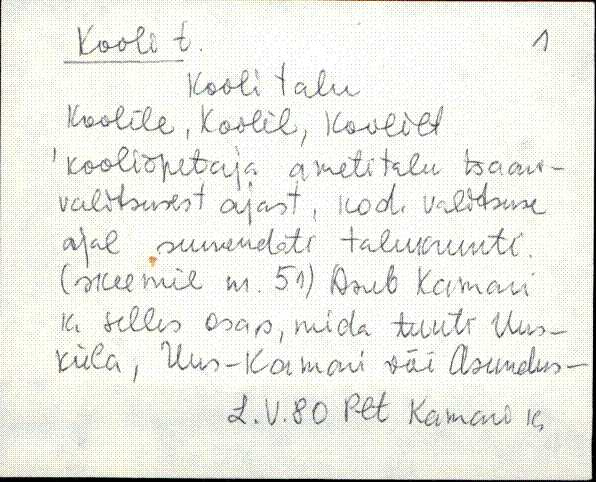 Kooli t.
1
Kooli talu
Koolile, Koolil, Koolilt
'kooliõpetaja ametitalu tsaari-
valitsuse ajast, kod. valitsuse
ajal suurendati talukrunti.
(skeemil nr. 51) Asub Kamari
k selles osas, mida tunti Uus-
küla, Uus-Kamari või Asundus-
L.V.80 Plt Kamari k